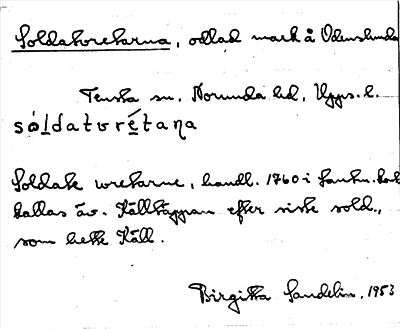 Soldatvretarna, odlad mark å Odenslunda
Tensta sn. Norunda hd, Upps. l.
sóldatvrétaṇa
Soldate wretarne, handl. 1760 i Lantm.
kallas äv. Källtäppan efter siste sold.,
som hette Käll.
Birgitta Sandelin. 1953